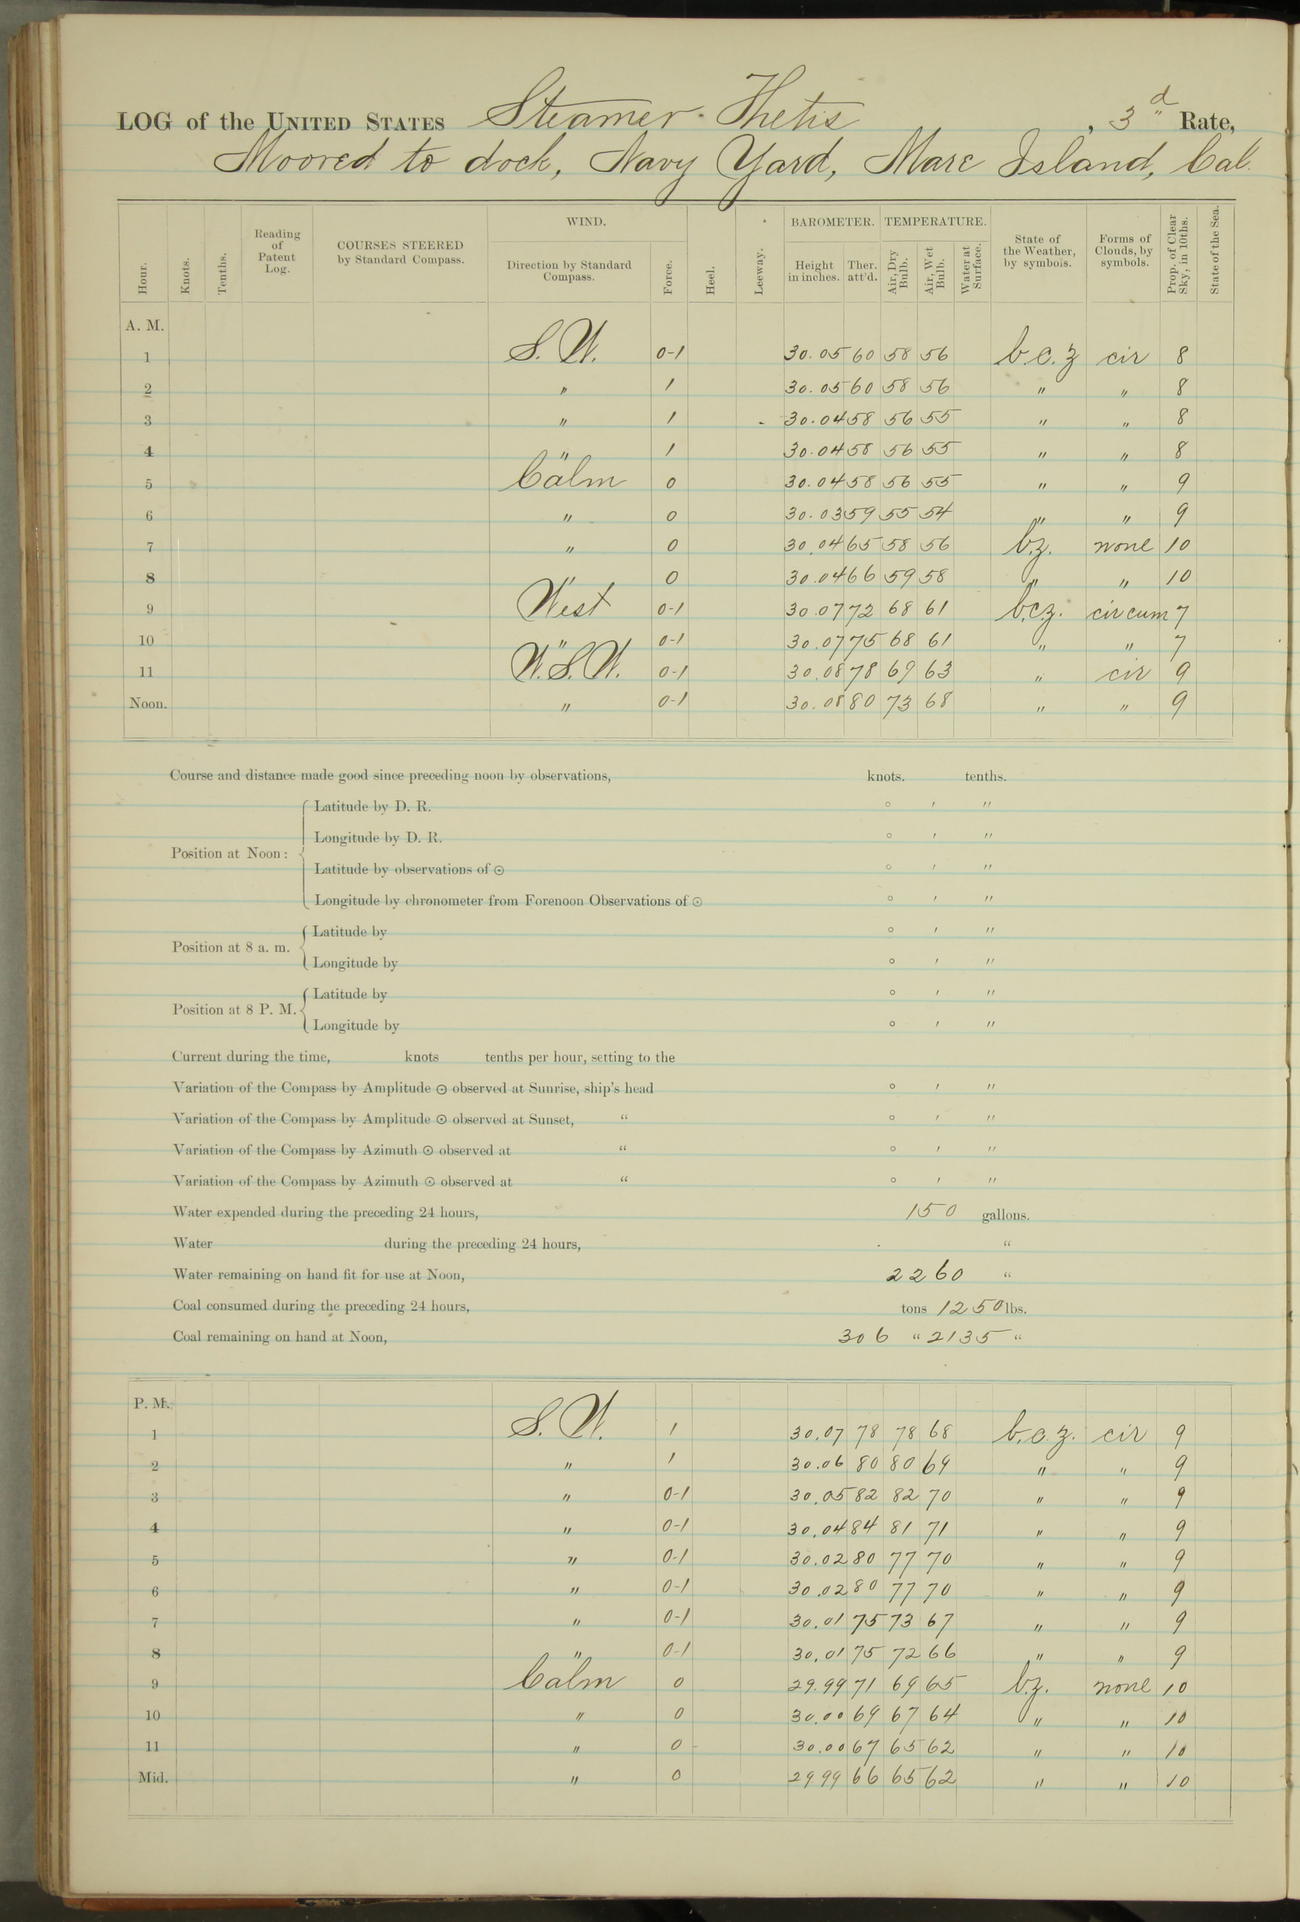 LOG of the UNITED STATES Steamer Thetis, 3d Rate,
Moored to dock, Navy Yard, Mare Island, Cal.
Hour. Knots. Tenths. Reading of Patent Log. COURSES STEERED by Standard Compass. WIND. Direction by Standard Compass. Force. Heel. Leeway. BAROMETER. Height in inches. Ther. att'd. TEMPERATURE. Air, Dry Bulb. Air, Wet Bulb. Water at Surface. State of the Weather, by symbols. Forms of Clouds, by symbols. Prop. of Clear Sky, in 10ths. State of the Sea.
A. M.
1 S. W. 0-1 30.05 60 58 56 b.c.z cir 8
2 " 1 30.05 60 58 56 " " 8
3 " 1 30.04 58 56 55 " " 8
4 " 1 30.04 58 56 55 " " 8
5 Calm 0 30.04 58 56 55 " " 9
6 " 0 30.03 59 55 54 " " 9
7 " 0 30.04 65 58 56 b.z. none 10
8 " 0 30.04 66 59 58 " " 10
9 West 0-1 30.07 72 68 61 b.c.z. cir cum 7
10 " 0-1 30.07 75 68 61 " " 7
11 W.S.W. 0-1 30.08 78 69 63 " cir 9
Noon. " 0-1 30.08 80 73 68 " " 9
Course and distance made good since preceding noon by observations, knots. tenths.
Position at Noon: Latitude by D. R. ° ′ ″
Longitude by D. R. ° ′ ″
Latitude by observations of ⊙ ° ′ ″
Longitude by chronometer from Forenoon Observations of ⊙ ° ′ ″
Position at 8 a. m. Latitude by ° ′ ″
Longitude by ° ′ ″
Position at 8 P. M. Latitude by ° ′ ″
Longitude by ° ′ ″
Current during the time, knots tenths per hour, setting to the
Variation of the Compass by Amplitude ⊙ observed at Sunrise, ship's head ° ′ ″
Variation of the Compass by Amplitude ⊙ observed at Sunset, “ ° ′ ″
Variation of the Compass by Azimuth ⊙ observed at “ ° ′ ″
Variation of the Compass by Azimuth ⊙ observed at “ ° ′ ″
Water expended during the preceding 24 hours, 150 gallons.
Water during the preceding 24 hours, “
Water remaining on hand fit for use at Noon, 2260 “
Coal consumed during the preceding 24 hours, tons 1250 lbs.
Coal remaining on hand at Noon, 306 “ 2135 “
P. M.
1 S. W. 1 30.07 78 78 68 b.c.z. cir 9
2 " 1 30.06 80 80 69 " " 9
3 " 0-1 30.05 82 82 70 " " 9
4 " 0-1 30.04 84 81 71 " " 9
5 " 0-1 30.02 80 77 70 " " 9
6 " 0-1 30.02 80 77 70 " " 9
7 " 0-1 30.01 75 73 67 " " 9
8 " 0-1 30.01 75 72 66 " " 9
9 Calm 0 29.99 71 69 65 b.z. none 10
10 " 0 30.00 69 67 64 " " 10
11 " 0 30.00 67 65 62 " " 10
Mid. " 0 29.99 66 65 62 " " 10